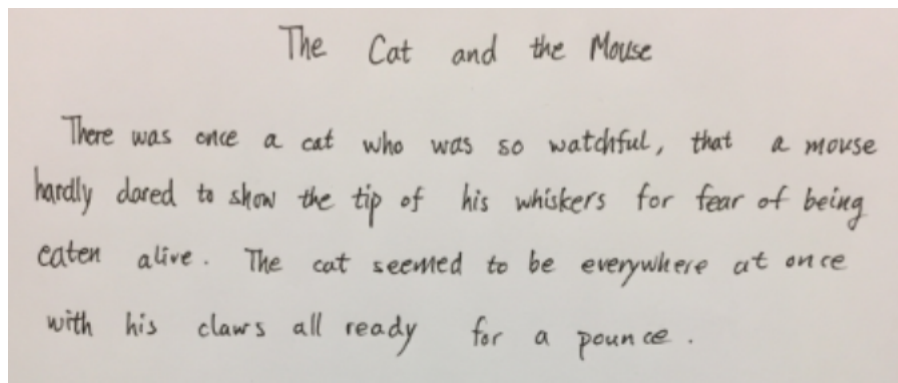 The Cat and the Mouse
There was once a cat who was so watchful, that a mouse
hardly dared to show the tip of his whiskers for fear of being
eaten alive. The cat seemed to be everywhere at once
with his claws all ready for a pounce.